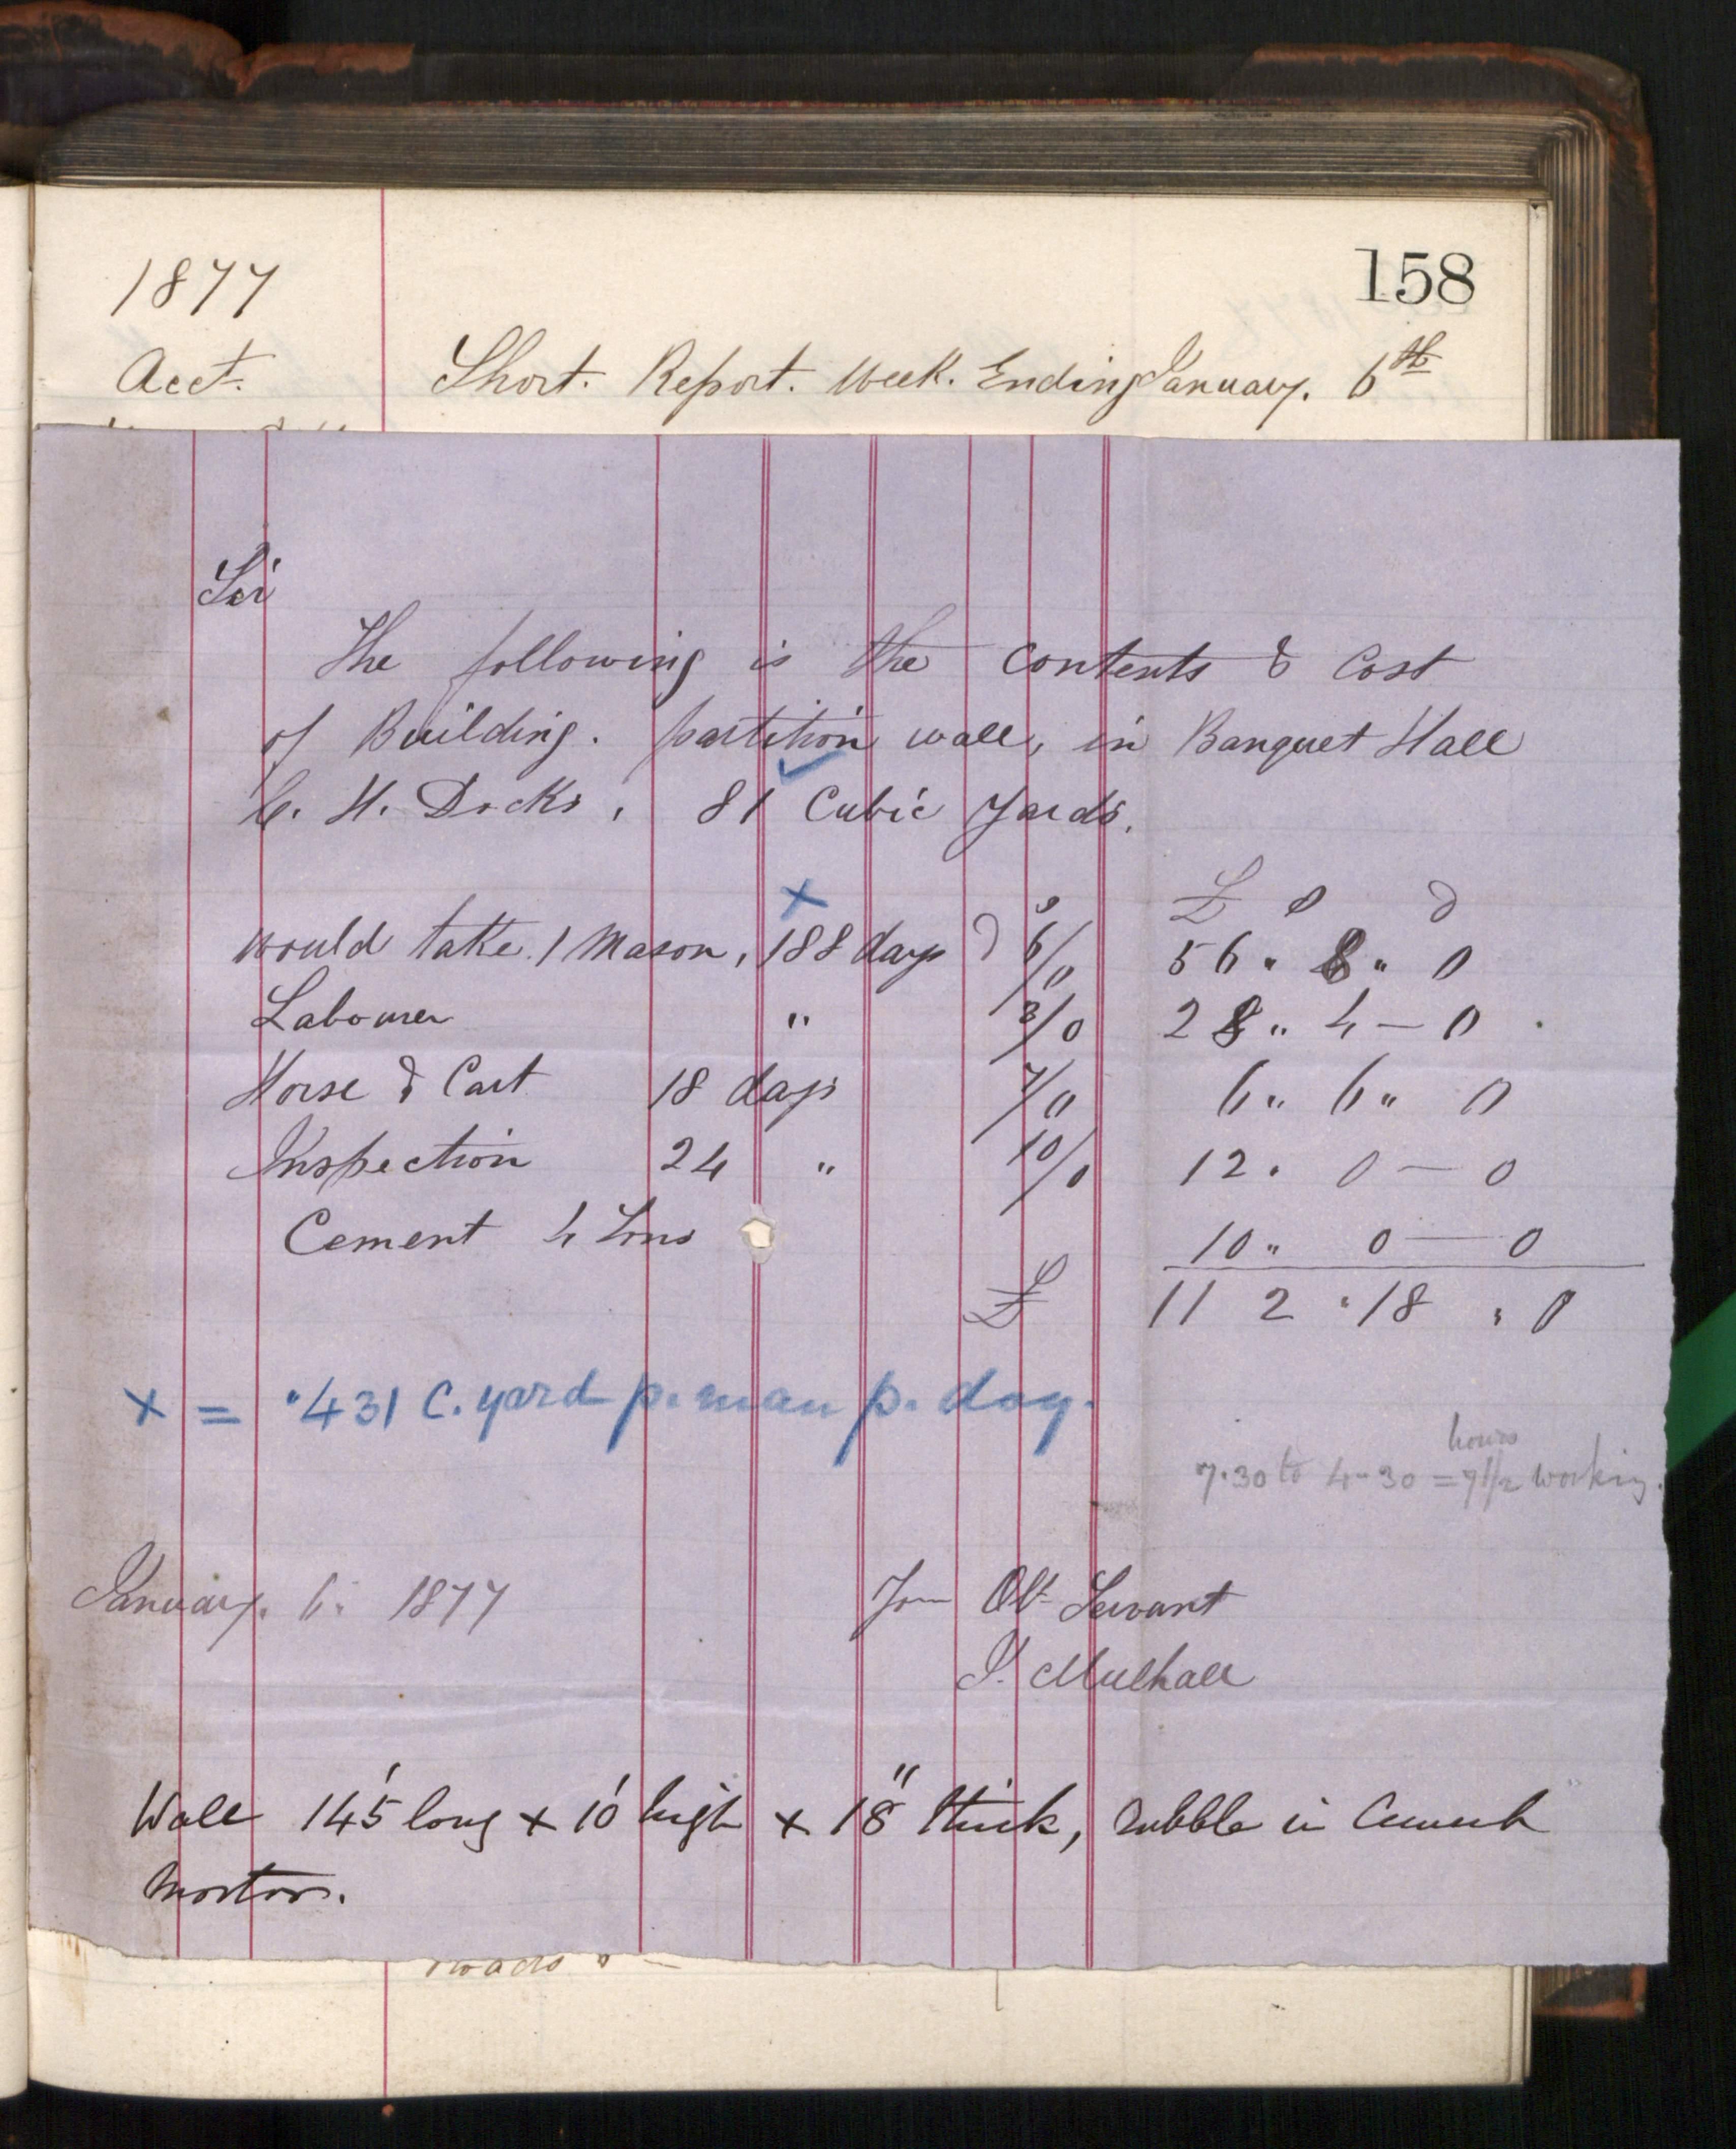 158
1877
Acct. Short. Report. Week. Ending January. 6th
Sir
The following is the contents & Cost
of Building. partition wall, in Banquet Hall
C. H. Docks, 81 Cubic Yards.
£ s d
would take 1 Mason, 188 days @ 6/0 56 " 8 " 0
Labourer " 3/0 28 " 4 — 0
Horse & Cart 18 days 7/0 6 " 6 " 0
Inspection 24 " 10/0 12 . 0 — 0
Cement 4 Tons 10 " 0 — 0
£ 112 . 18 . 0
x = .431 C. yard p. man p. day.
hours
7.30 to 4-30 = 7 1/2 working.
January. 6. 1877 Your Obt Servant
J. Mulhall
Wall 145' long x 10' high x 18" thick, rubble in Cement
Mortar.
roads &